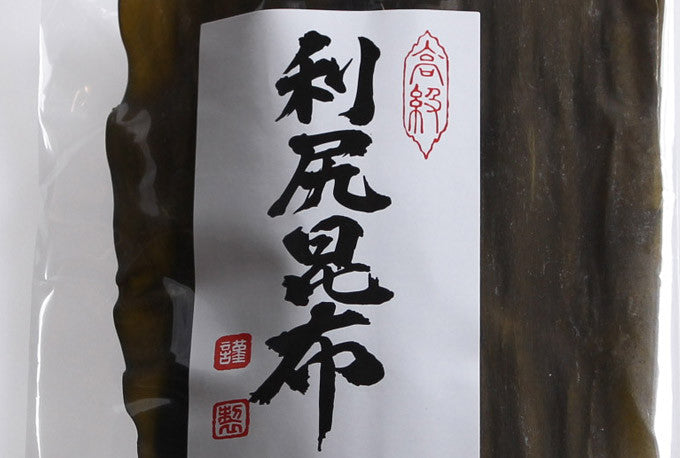 高級
利尻昆布
謹製